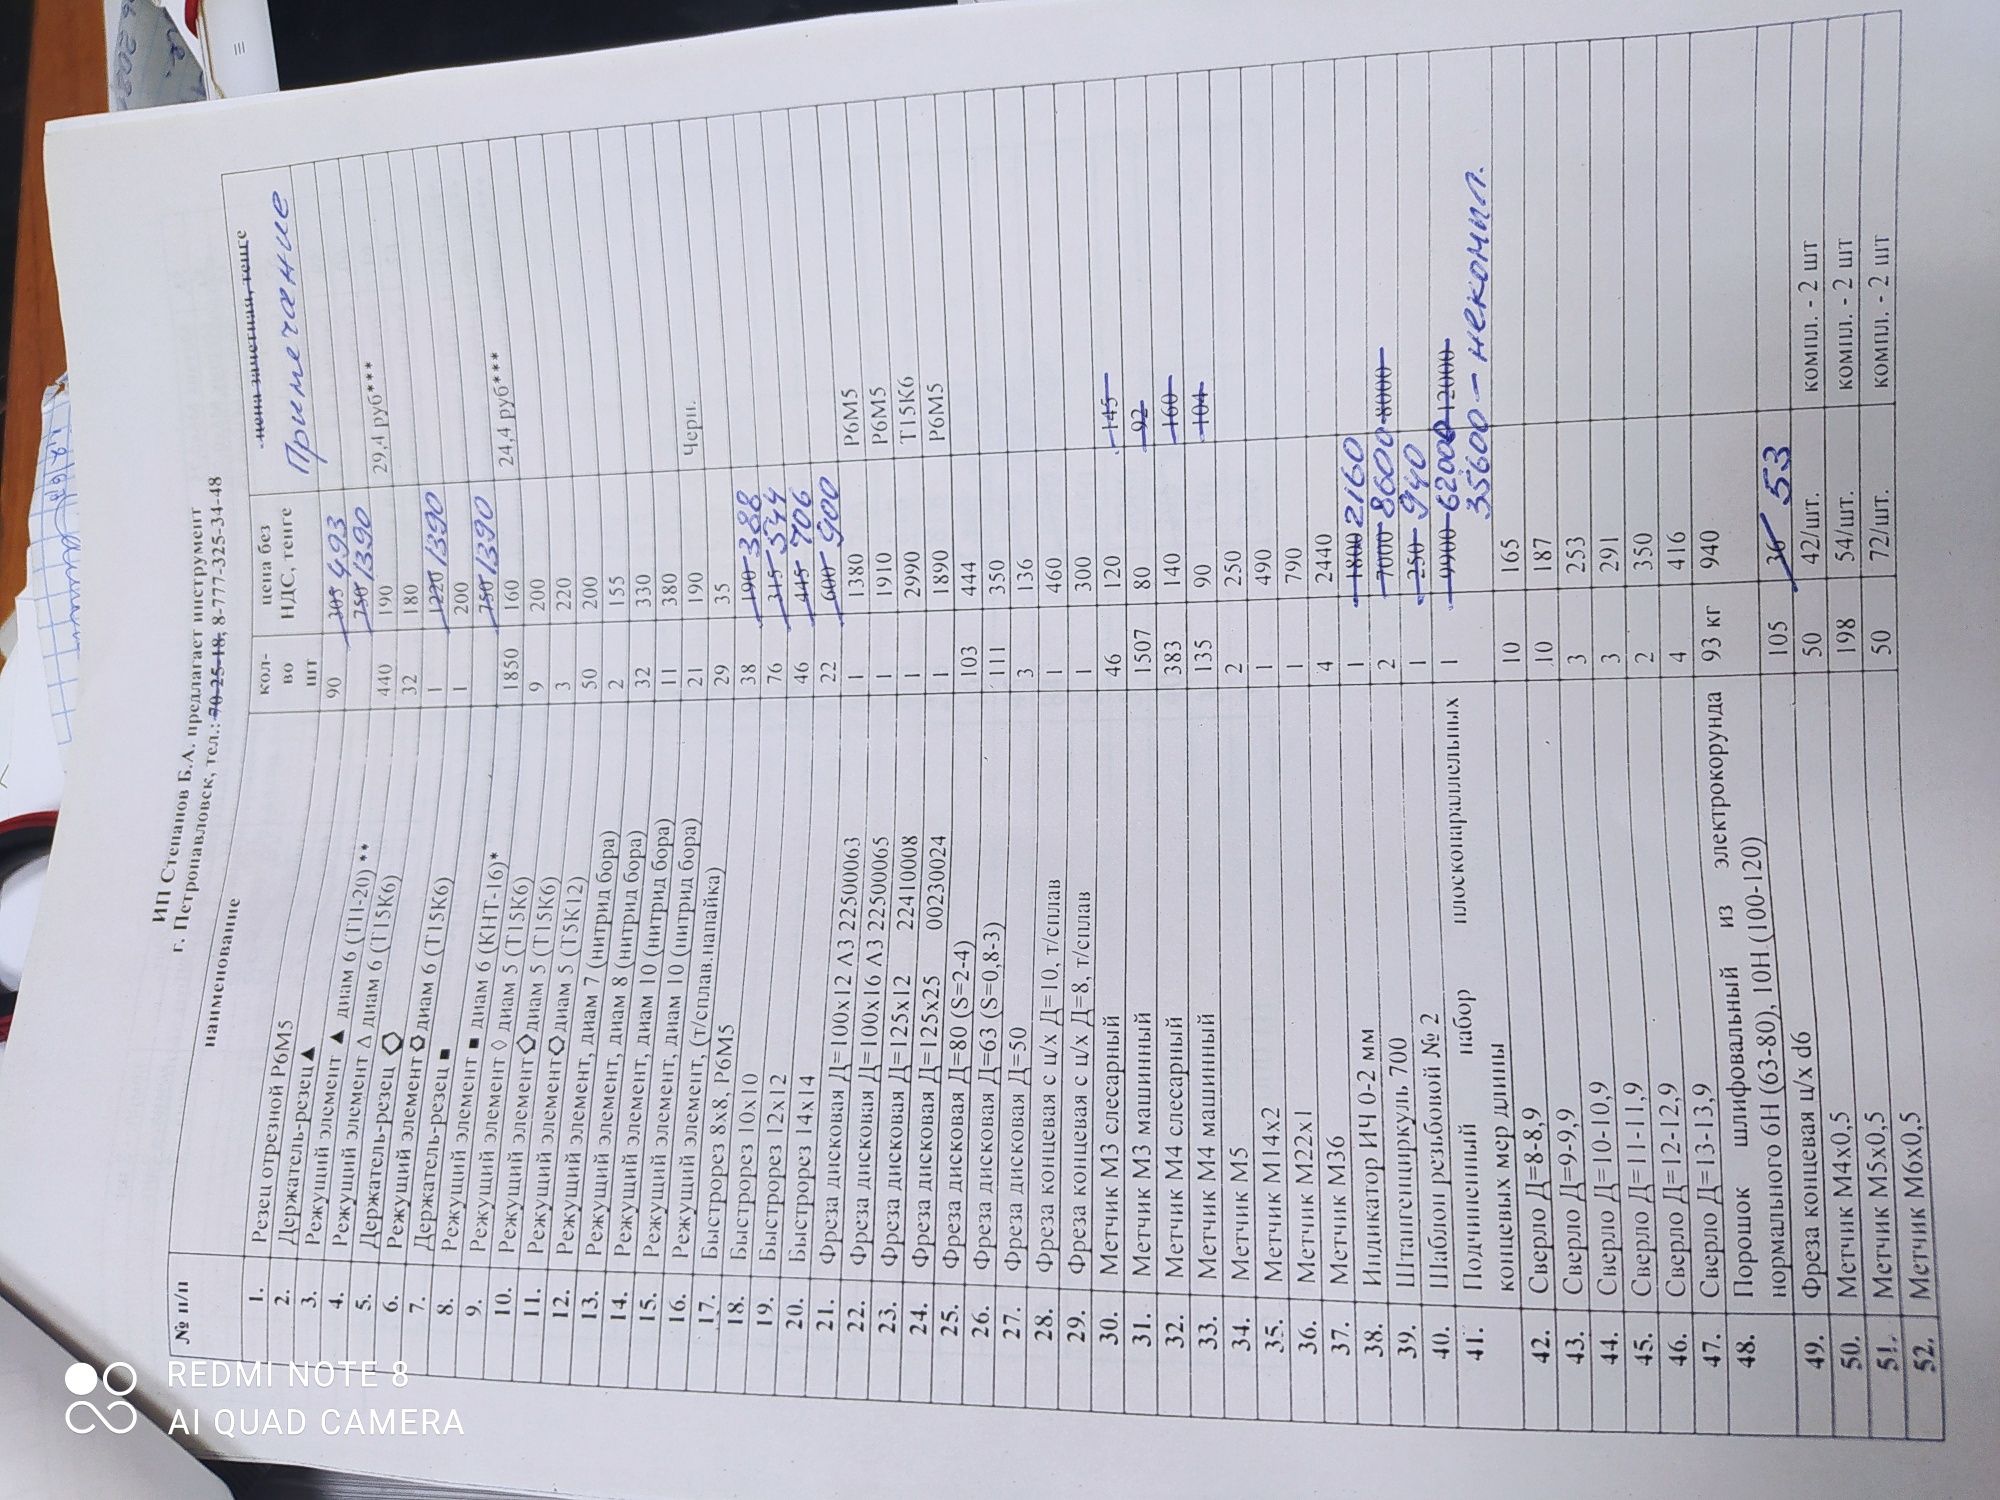 ИП Степанов Б.А. предлагает инструмент
г. Петропавловск, тел.: 70-25-18, 8-777-325-34-48
№ п/п наименование кол-во шт цена без НДС, тенге цена заметная, тенге Примечание
1. Резец отрезной Р6М5 90 305 493
2. Держатель-резец▲ 750 1390
3. Режущий элемент ▲ диам 6 (Т11-20) ** 440 190 29,4 руб***
4. Режущий элемент △ диам 6 (Т15К6) 32 180
5. Держатель-резец ⬠ 1 1220 1390
6. Режущий элемент⬠диам 6 (Т15К6) 1 200
7. Держатель-резец ■ 750 1390
8. Режущий элемент ■ диам 6 (КНТ-16)* 1850 160 24,4 руб***
9. Режущий элемент ◊ диам 5 (Т15К6) 9 200
10. Режущий элемент⬠диам 5 (Т15К6) 3 220
11. Режущий элемент⬠диам 5 (Т5К12) 50 200
12. Режущий элемент, диам 7 (нитрид бора) 2 155
13. Режущий элемент, диам 8 (нитрид бора) 32 330
14. Режущий элемент, диам 10 (нитрид бора) 11 380
15. Режущий элемент, диам 10 (нитрид бора) 21 190 Черн.
16. Режущий элемент, (т/сплав.напайка) 29 35
17. Быстрорез 8х8, Р6М5 38 190 388
18. Быстрорез 10х10 76 315 544
19. Быстрорез 12х12 46 445 706
20. Быстрорез 14х14 22 600 900
21. Фреза дисковая Д=100х12 Л3 22500063 1 1380 Р6М5
22. Фреза дисковая Д=100х16 Л3 22500065 1 1910 Р6М5
23. Фреза дисковая Д=125х12 22410008 1 2990 Т15К6
24. Фреза дисковая Д=125х25 00230024 1 1890 Р6М5
25. Фреза дисковая Д=80 (S=2-4) 103 444
26. Фреза дисковая Д=63 (S=0,8-3) 111 350
27. Фреза дисковая Д=50 3 136
28. Фреза концевая с ц/х Д=10, т/сплав 1 460
29. Фреза концевая с ц/х Д=8, т/сплав 1 300
30. Метчик М3 слесарный 46 120 145
31. Метчик М3 машинный 1507 80 92
32. Метчик М4 слесарный 383 140 160
33. Метчик М4 машинный 135 90 104
34. Метчик М5 2 250
35. Метчик М14х2 1 490
36. Метчик М22х1 1 790
37. Метчик М36 4 2440
38. Индикатор ИЧ 0-2 мм 1 1800 2160
39. Штангенциркуль 700 2 7000 8600 8000
40. Шаблон резьбовой № 2 1 250 940
41. Подчиненный набор плоскопараллельных 1 9900 62000 12000
концевых мер длины 35600 - некомпл.
42. Сверло Д=8-8,9 10 165
43. Сверло Д=9-9,9 10 187
44. Сверло Д=10-10,9 3 253
45. Сверло Д=11-11,9 3 291
46. Сверло Д=12-12,9 2 350
47. Сверло Д=13-13,9 4 416
48. Порошок шлифовальный из электрокорунда 93 кг 940
нормального 6Н (63-80), 10Н (100-120)
49. Фреза концевая ц/х d6 105 36 53
50. Метчик М4х0,5 50 42/шт. компл. - 2 шт
51. Метчик М5х0,5 198 54/шт. компл. - 2 шт
52. Метчик М6х0,5 50 72/шт. компл. - 2 шт
REDMI NOTE 8
AI QUAD CAMERA